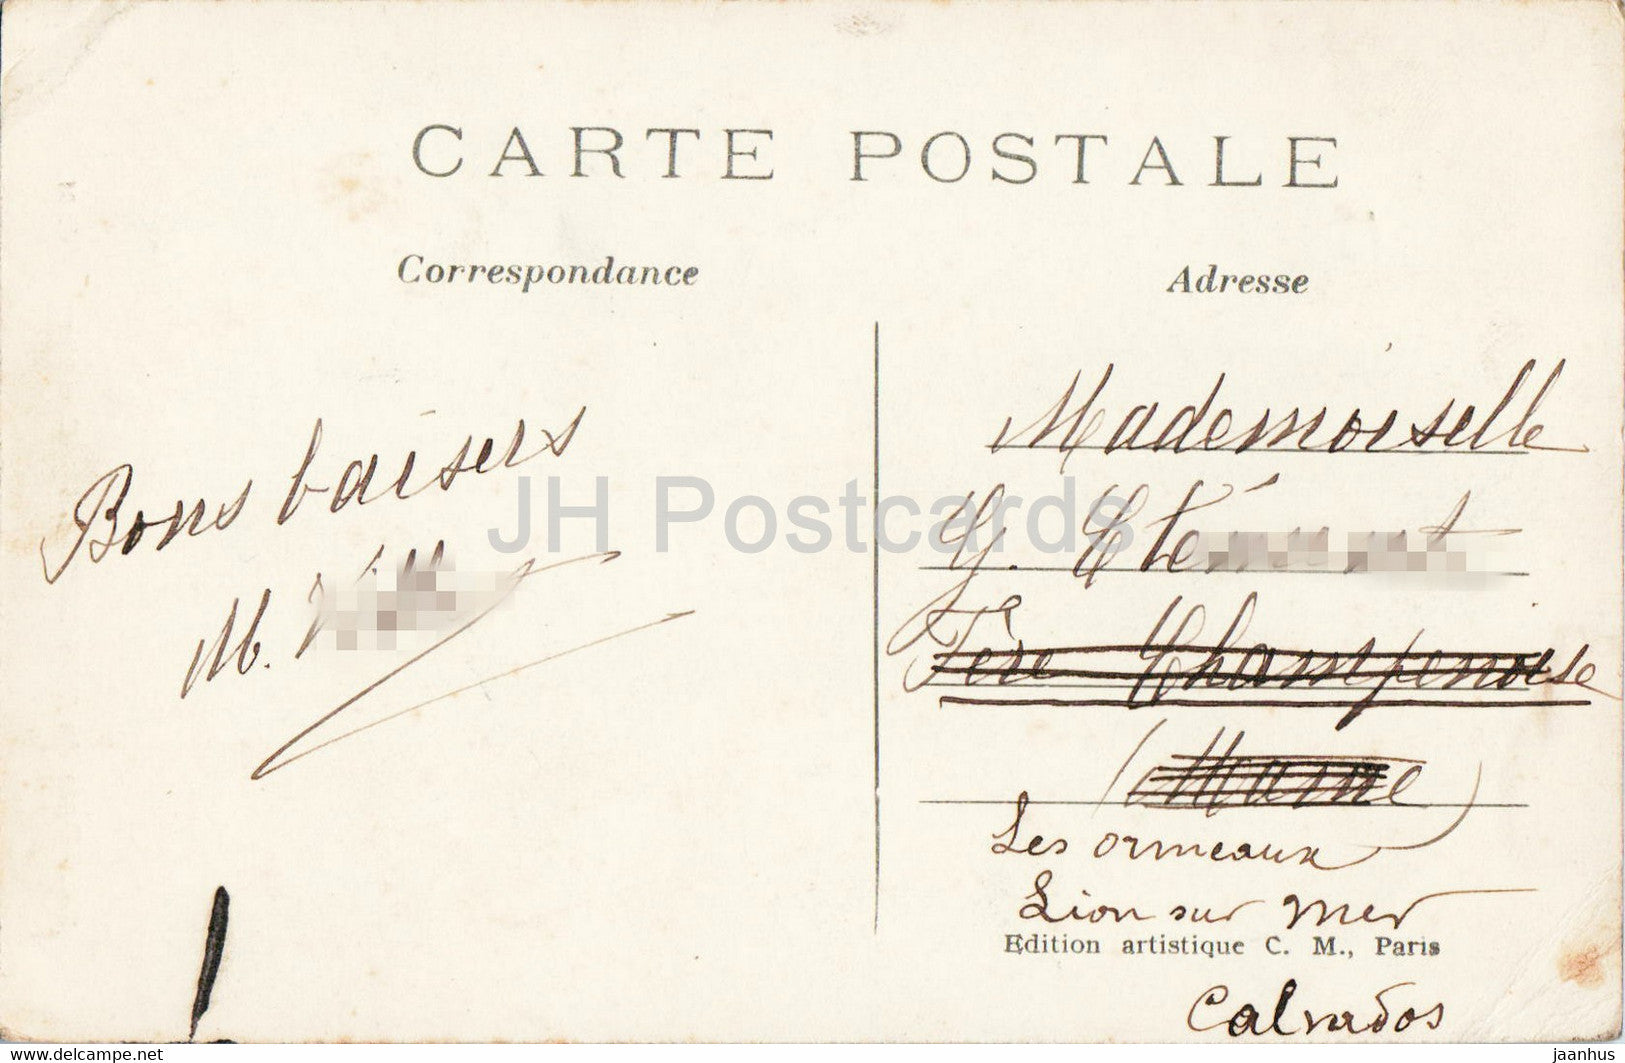 CARTE POSTALE
Correspondance
Adresse
Bons baisers
M.
Mademoiselle
G.
Fère Champenoise
(Marne)
Les ormeaux
Lion sur mer
Edition artistique C. M., Paris
Calvados
JH Postcards
www.delcampe.net
jaanhus